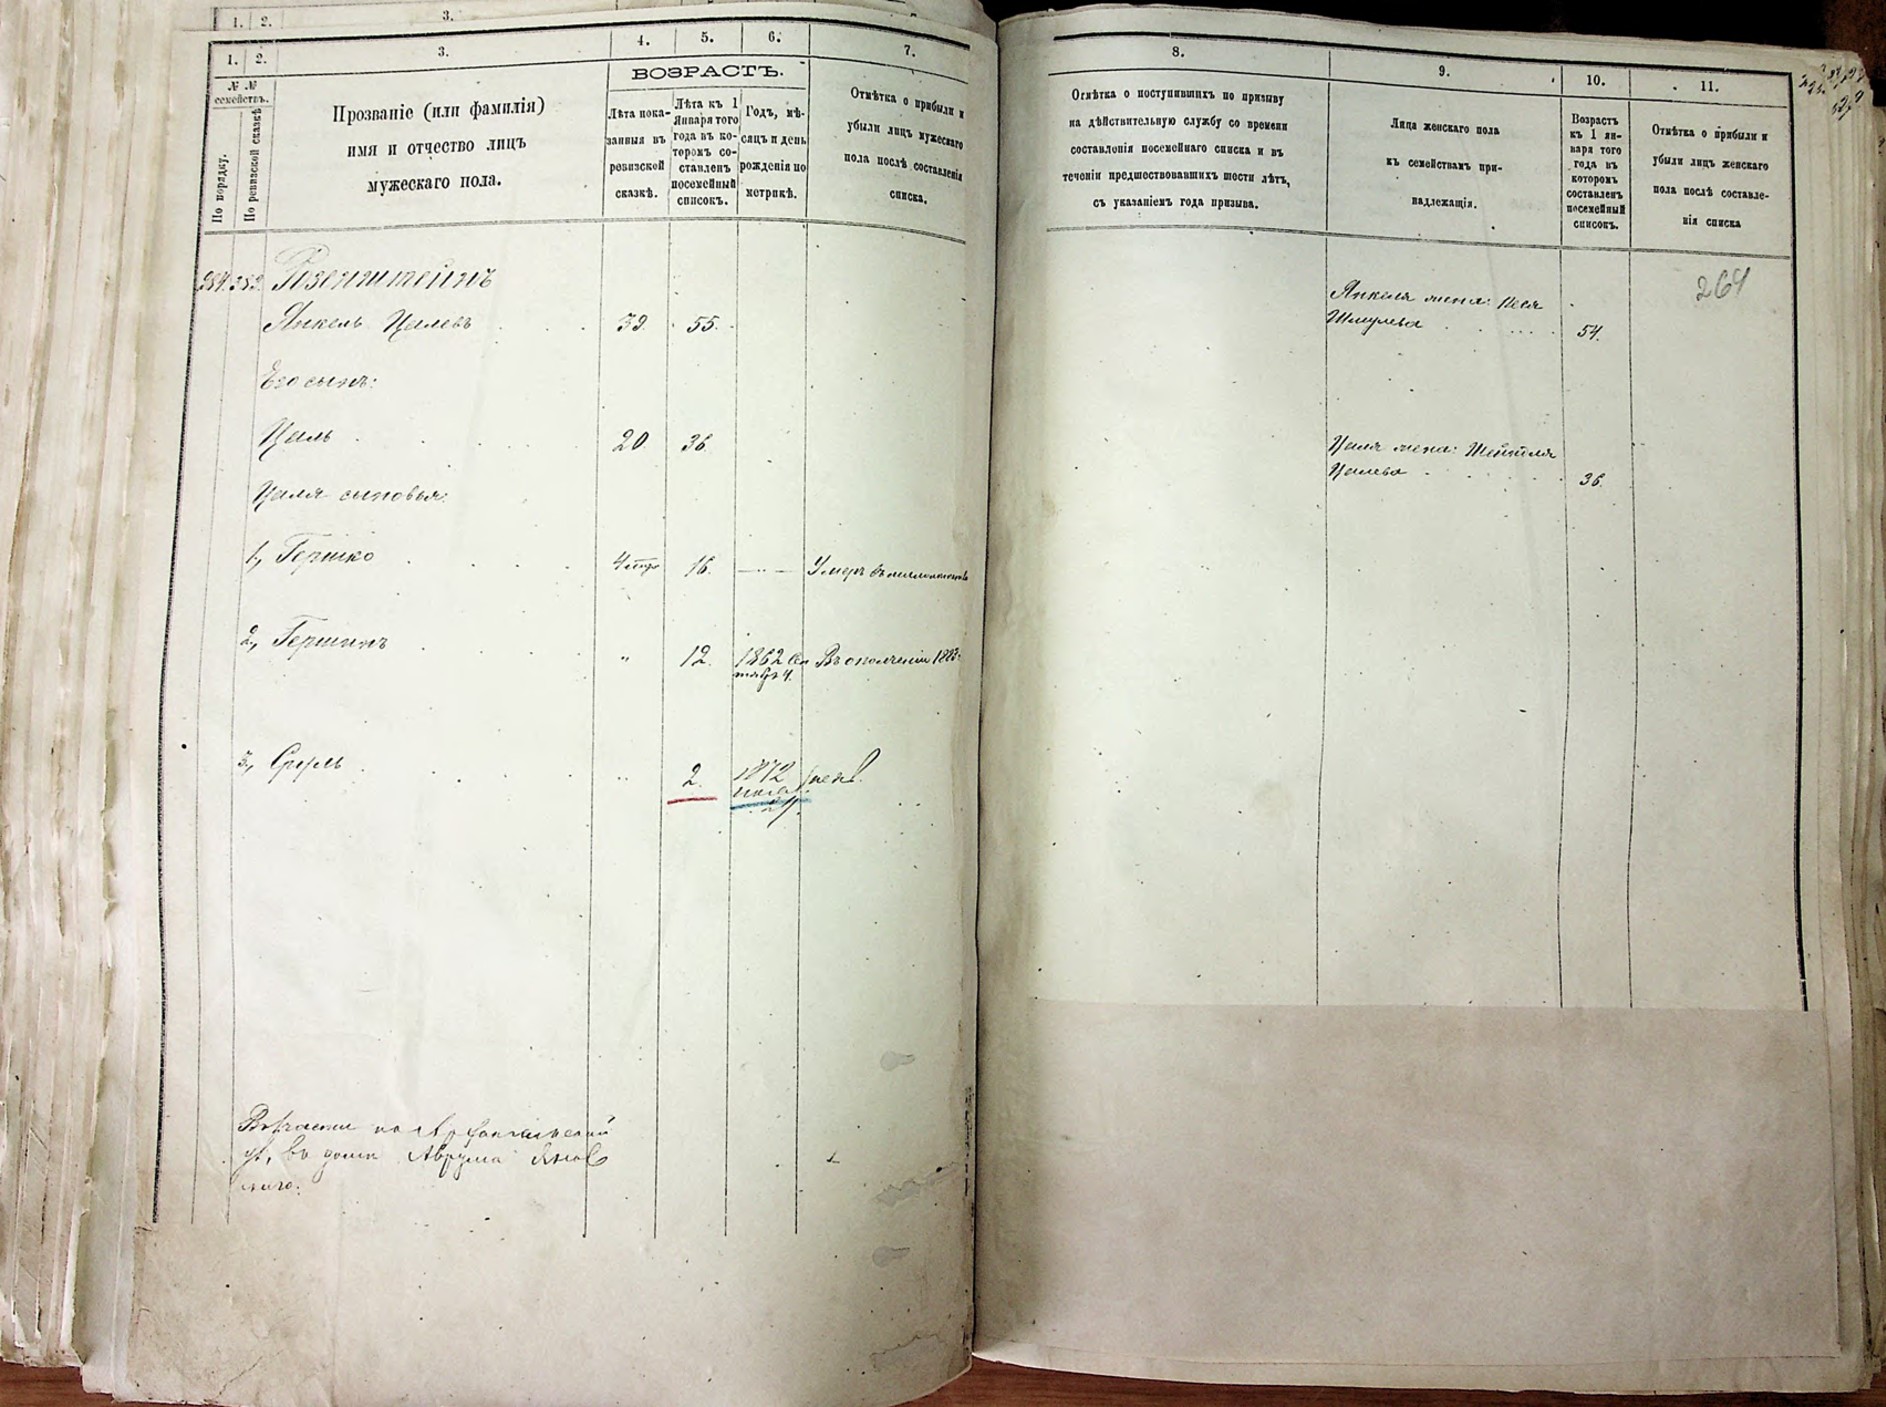 1. 2. 3.
1. 2. 3. 4. 5. 6. 7.
№ №
семействъ.
По порядку.
По ревизской сказкѣ
Прозваніе (или фамилія)
имя и отчество лицъ
мужескаго пола.
ВОЗРАСТЪ.
Лѣта пока-
занныя въ
ревизской
сказкѣ.
Лѣта къ 1
Января того
года въ ко-
торомъ со-
ставленъ
посемейный
списокъ.
Годъ, мѣ-
сяцъ и день
рожденія по
метрикѣ.
Отмѣтка о прибыли и
убыли лицъ мужескаго
пола послѣ составленія
списка.
352.
Янкель Цалевъ 39. 55.
Его сынъ:
Цаль 20 36.
Цаля сыновья:
1, Гершко 4 16. Умеръ
2, Гершинъ " 12. 1862 Сен Въ ополченіи
тября 4.
3, Сруль " 2. 1872
24.
въ домѣ Аврума
8. 9. 10. 11.
Отмѣтка о поступившихъ по призыву
на дѣйствительную службу со времени
составленія посемейнаго списка и въ
теченіи предшествовавшихъ шести лѣтъ,
съ указаніемъ года призыва.
Лица женскаго пола
къ семействамъ при-
надлежащія.
Возрастъ
къ 1 ян-
варя того
года въ
которомъ
составленъ
посемейный
списокъ.
Отмѣтка о прибыли и
убыли лицъ женскаго
пола послѣ составле-
нія списка
264
Янкеля жена: Песя
Шмулева 54.
Цаля жена: Шейндля
Цалева 36.